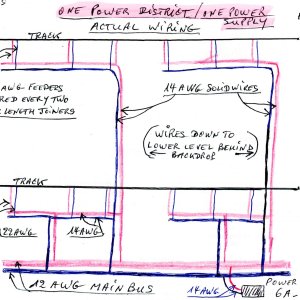 ONE POWER DISTRICT / ONE POWER
SUPPLY
ACTUAL WIRING
TRACK
AWG-FEEDERS
RED EVERY TWO
LENGTH JOINERS
14 AWG SOLID WIRES
WIRES DOWN TO
LOWER LEVEL BEHIND
BACKDROP
TRACK
22AWG
14AWG
12 AWG MAIN BUS
14AWG
POWER
6A-